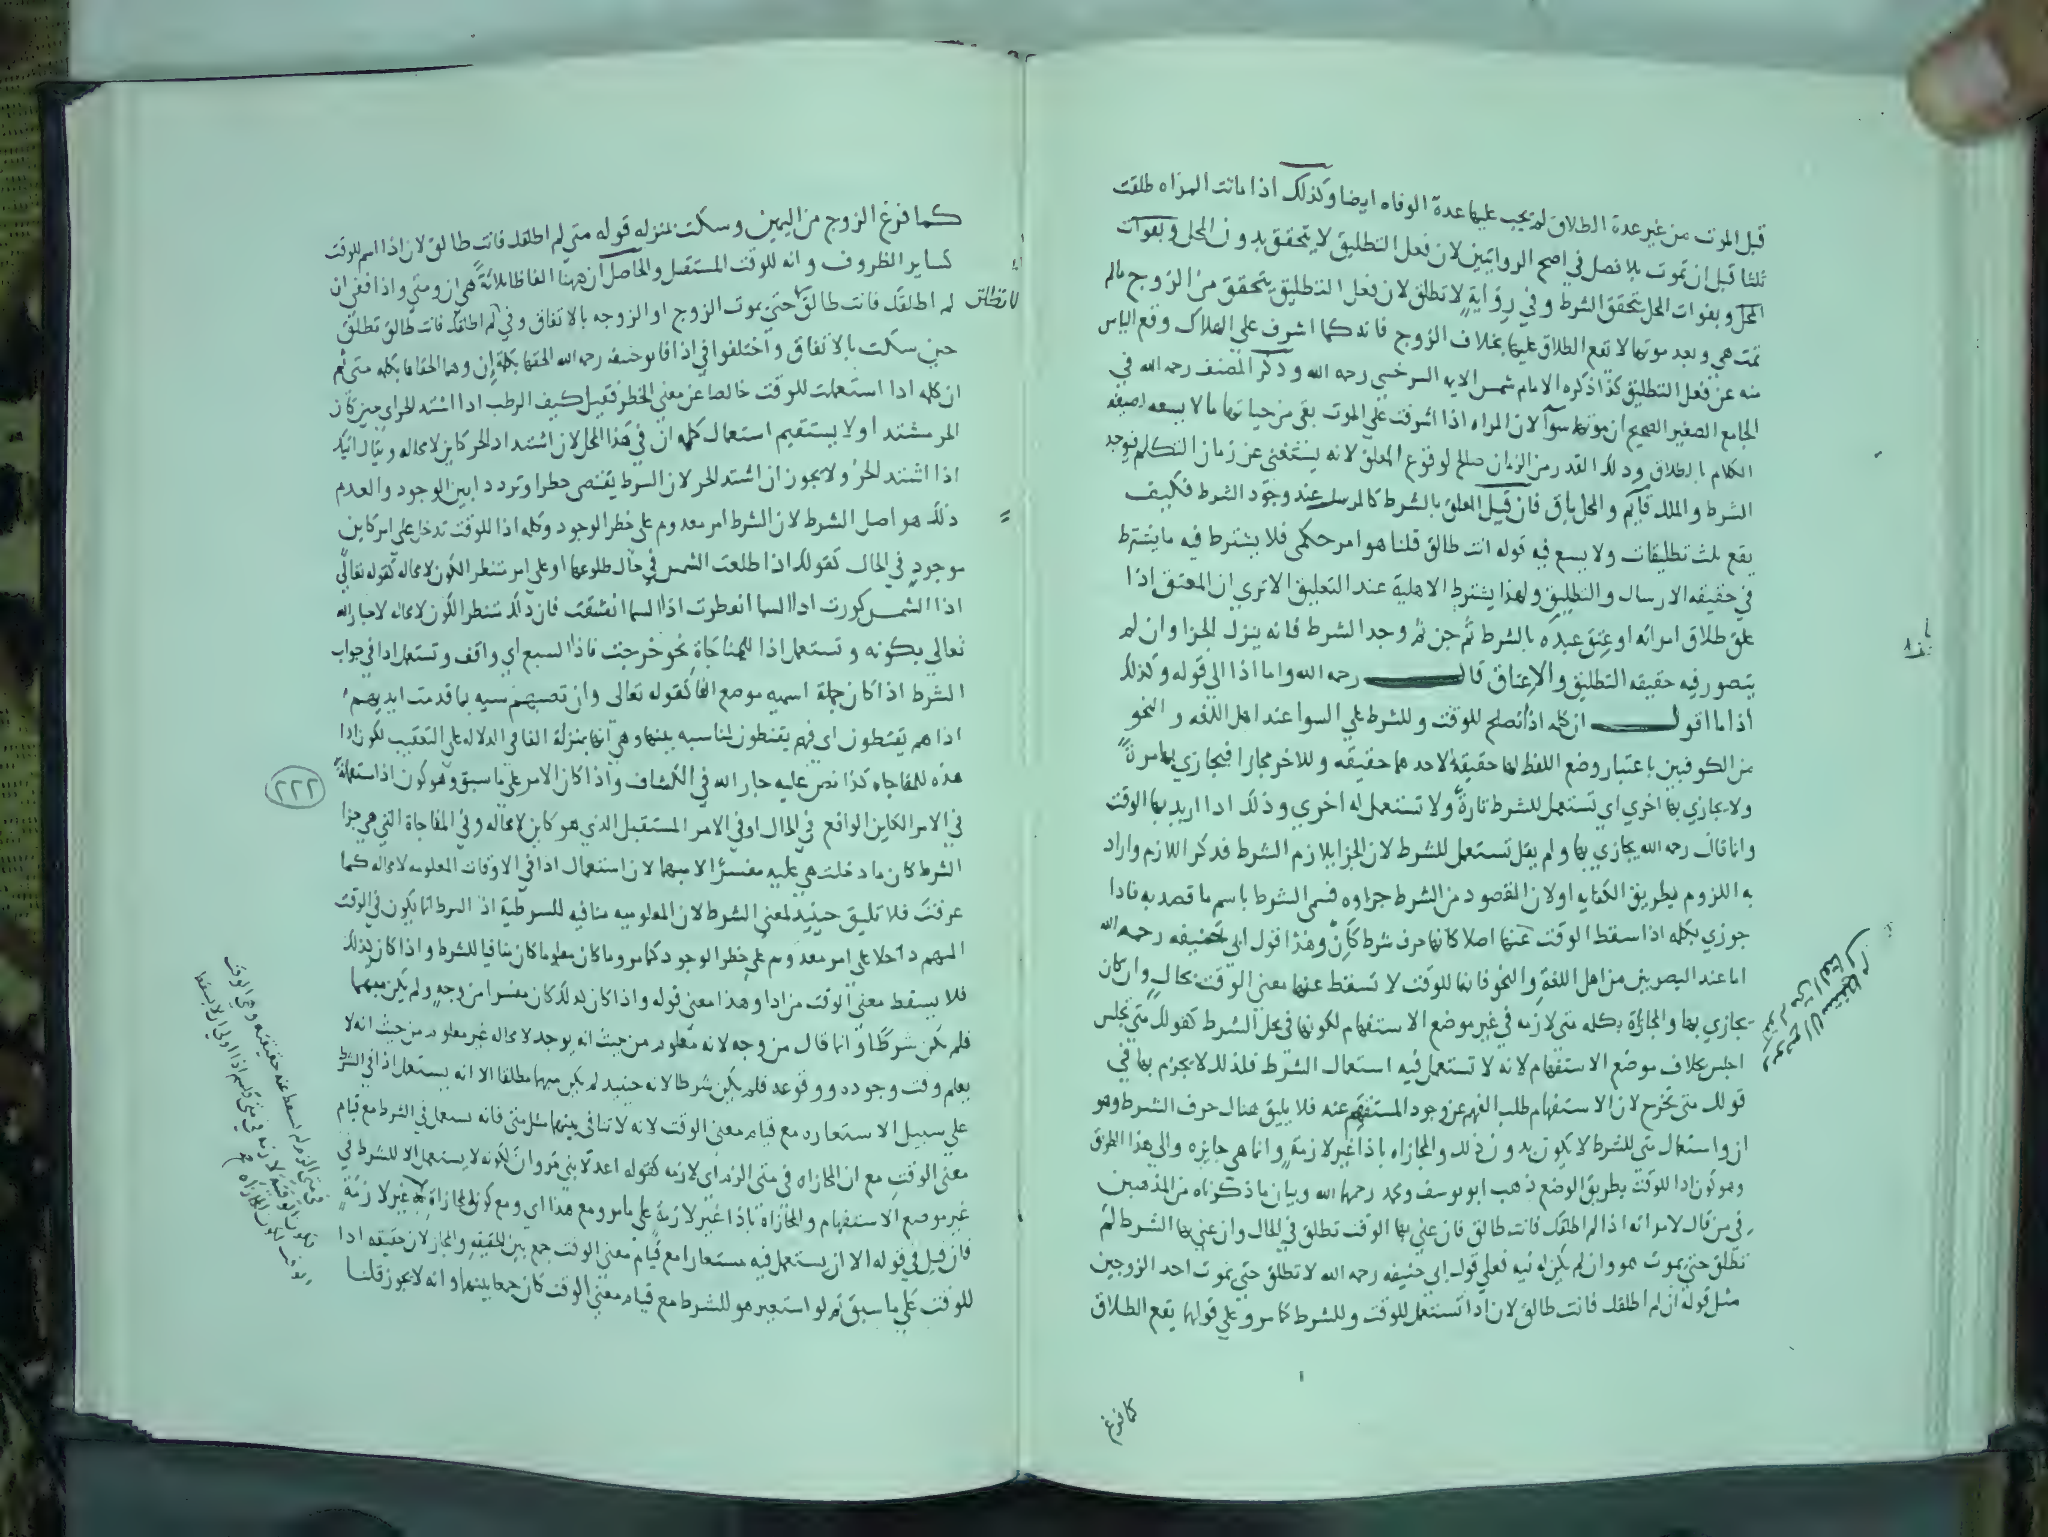 قبل الموت من غير عدة الطلاق لم يجب عليها عدة الوفاه ايضا وكذلك اذا ماتت المراه طلقت
ثلثا قبل ان تموت بلا فصل في اصح الروايتين لان فعل التطليق لا يتحقق بدون المحل وبفوات
المحل وبفوات المحل يتحقق الشرط وفي رواية لا تطلق لان فعل التطليق يتحقق من الزوج مالم
تمت هي وبعد موتها لا تقع الطلاق عليها بخلاف الزوج فانه كما اشرف على الهلاك وقع الياس
منه عن فعل التطليق كذا ذكره الامام شمس الايمه السرخسي رحمه الله وذكر المصنف رحمه الله في
الجامع الصغير الصحيح ان موتها سوآ لان المراه اذا اشرفت على الموت بقي من حياتها ما لا يسعه لصيغه
الكلام بالطلاق وذلك القدر من الزمان صالح لوقوع المعلق لانه يستغني عن زمان التكلم فوجد
الشرط والملك قآيم والمحل باق فان قيل المعلق بالشرط كالمرسل عند وجود الشرط فكيف
يقع ثلث تطليقات ولا يسع فيه قوله انت طالق قلنا هو امر حكمى فلا يشترط فيه ما يشترط
في حقيقه الارسال والتطليق ولهذا يشترط الاهلية عند التعليق الا تري ان المعتق اذا
علق طلاق امراته او عتق عبده بالشرط ثم جن ثم وجد الشرط فانه ينزل الجزا وان لم
يتصور فيه حقيقه التطليق والاعتاق قال رحمه الله واما اذا الى قوله وكذلك
اذا ما اقول ان كله اذا تصلح للوقت وللشرط علي السوا عند اهل اللغه والنحو
من الكوفيين باعتبار وضع اللفظ لهما حقيقة لا لاحدهما حقيقه وللاخر مجازا فيجازي بها مرة
ولا يجازي بها اخري اي تستعمل للشرط تارة ولا تستعمل له اخري وذلك اذا اريد بها الوقت
وانما قال رحمه الله يجازي بها ولم يقل تستعمل للشرط لان الجزا يلازم الشرط فذكر اللازم واراد
به الملزوم بطريق الكنايه اولان المقصود من الشرط جزاوه فسمى الشرط باسم ما قصد به فاذا
جوزي بكله اذا سقط الوقت عنها اصلا كانها حرف شرط كان وهذا قول ابي حنيفه رحمه الله
اما عند البصريين من اهل اللغة والنحو فانها للوقت لا تسقط عنها معني الوقت بحال وان كان
يجازي بها والمجازاة بكله متي لازمه في غير موضع الاستفهام لكونها في محل الشرط كقولك متي تجلس
اجلس بخلاف موضع الاستفهام لانه لا تستعمل فيه استعمال الشرط فلذلك لا يجزم بها في
قولك متى تخرج لان الاستفهام طلب الفهم عن وجود المستفهم عنه فلا يليق هناك حرف الشرط وهو
ان واستعمال متي للشرط لا يكون بدون ذلك والمجازاه باذا غير لازمة وانما هي جايزه والى هذا الطريق
وهو كون اذا للوقت بطريق الوضع ذهب ابو يوسف ومحمد رحمهما الله وبيان ما ذكرناه من المذهبين
في من قال لامراته اذا لم اطلقك فانت طالق فان عني بها الوقت تطلق في الحال وان عني بها الشرط لم
تطلق حتي يموت هو وان لم يكن له نيه فعلي قول ابي حنيفه رحمه الله لا تطلق حتي يموت احد الزوجين
مثل قوله ان لم اطلقك فانت طالق لان اذا تستعمل للوقت وللشرط كما مر وعلي قولهما يقع الطلاق
كما فرغ
كما فرغ الزوج من اليمين وسكت بمنزله قوله متي لم اطلقك فانت طالق لان اذا اسم للوقت
كساير الظروف وانه للوقت المستقبل والحاصل ان ههنا الفاظا ثلاثة هي ان ومتي واذا ففي ان
لم اطلقك فانت طالق حتي يموت الزوج او الزوجه بالاتفاق وفي لم اطلقك فانت طالق تطلق
لا تطلق
حين سكت بالاتفاق واختلفوا في اذا فابو حنيفه رحمه الله الحقها بكلة ان وهما الحقاها بكله متي ثم
ان كله اذا استعملت للوقت خالصا عن معني الخطر فقيل كيف الرطب اذا اشتد الحر اي حين كان
الحر مشتدا ولا يستقيم استعمال كلمه ان في هذا المحل لان اشتداد الحر كاين لا محاله ويقال اتيك
اذا اشتد الحر ولا يجوز ان اشتد الحر لان الشرط يقتضي خطرا وترددا بين الوجود والعدم
ذلك هو اصل الشرط لان الشرط امر معدوم على خطر الوجود وكله اذا للوقت تدخل على امر كاين
موجود في الحال كقولك اذا طلعت الشمس في حال طلوعها او علي امر منتظر الكون لا محاله كقوله تعالى
اذا الشمس كورت اذا السما انفطرت اذا السما انشقت فان ذلك منتظر الكون لا محاله لاخبار الله
تعالي بكونه وتستعمل اذا للمفاجاة نحو خرجت فاذا السبع اي واقف وتستعمل اذا في جواب
الشرط اذا كان جملة اسميه موضع الفا كقوله تعالى وان تصبهم سيه بما قدمت ايديهم
اذا هم يقنطون اي فهم يقنطون لمناسبه بينهما وهي انها بمنزلة الفا في الدلاله على التعقيب لكون اذا
هذه للمفاجاه كذا نص عليه جار الله في الكشاف واذا كان الامر على ما سبق وهو كون اذا مستعملة
٢٢٢
في الامر الكاين الواقع في الحال او في الامر المستقبل الذي هو كاين لا محاله وفي المفاجاة التي هي جزا
الشرط كان ما دخلت هي عليه مفسرًا لا مبهما لان استعمال اذا في الاوقات المعلومه لا محاله كما
عرفت فلا تليق حينيذ لمعني الشرط لان المعلوميه منافيه للشرطية اذ الشرط انما يكون في الوقت
المبهم داخلا على امر معدوم على خطر الوجود كما مر وما كان معلوما كان منافيا للشرط واذا كان كذلك
فلا يسقط معني الوقت من اذا وهذا معني قوله واذا كان كذلك كان مفسرا من وجه ولم يكن مبهما
فلم يكن شرطا وانما قال من وجه لانه معلوم من حيث انه يوجد لا محاله غير معلوم من حيث انه لا
يعلم وقت وجوده ووقوعه فلم يكن شرطا لانه حينيد لم يكن مبهما مطلقا الا انه يستعمل اذا في الشرط
علي سبيل الاستعاره مع قيام معني الوقت لانه لا تنافي بينهما مثل متي فانه تستعمل في الشرط مع قيام
معني الوقت مع ان المجازاه في متي الزم اي لازمه كقوله اعدلا بني مروان لكونه لا يستعمل الا للشرط في
غير موضع الاستفهام والمجازاة باذا غير لازمة على ما مر ومع هذا اي ومع كون المجازاة غير لازمة
فان قيل في قوله الا ان يستعمل فيه مستعارا مع قيام معني الوقت جمع بين الحقيقه والمجاز لان حقيقه اذا
للوقت علي ما سبق ثم لو استعير هو للشرط مع قيام معني الوقت كان جمعا بينهما وانه لا يجوز قلنا